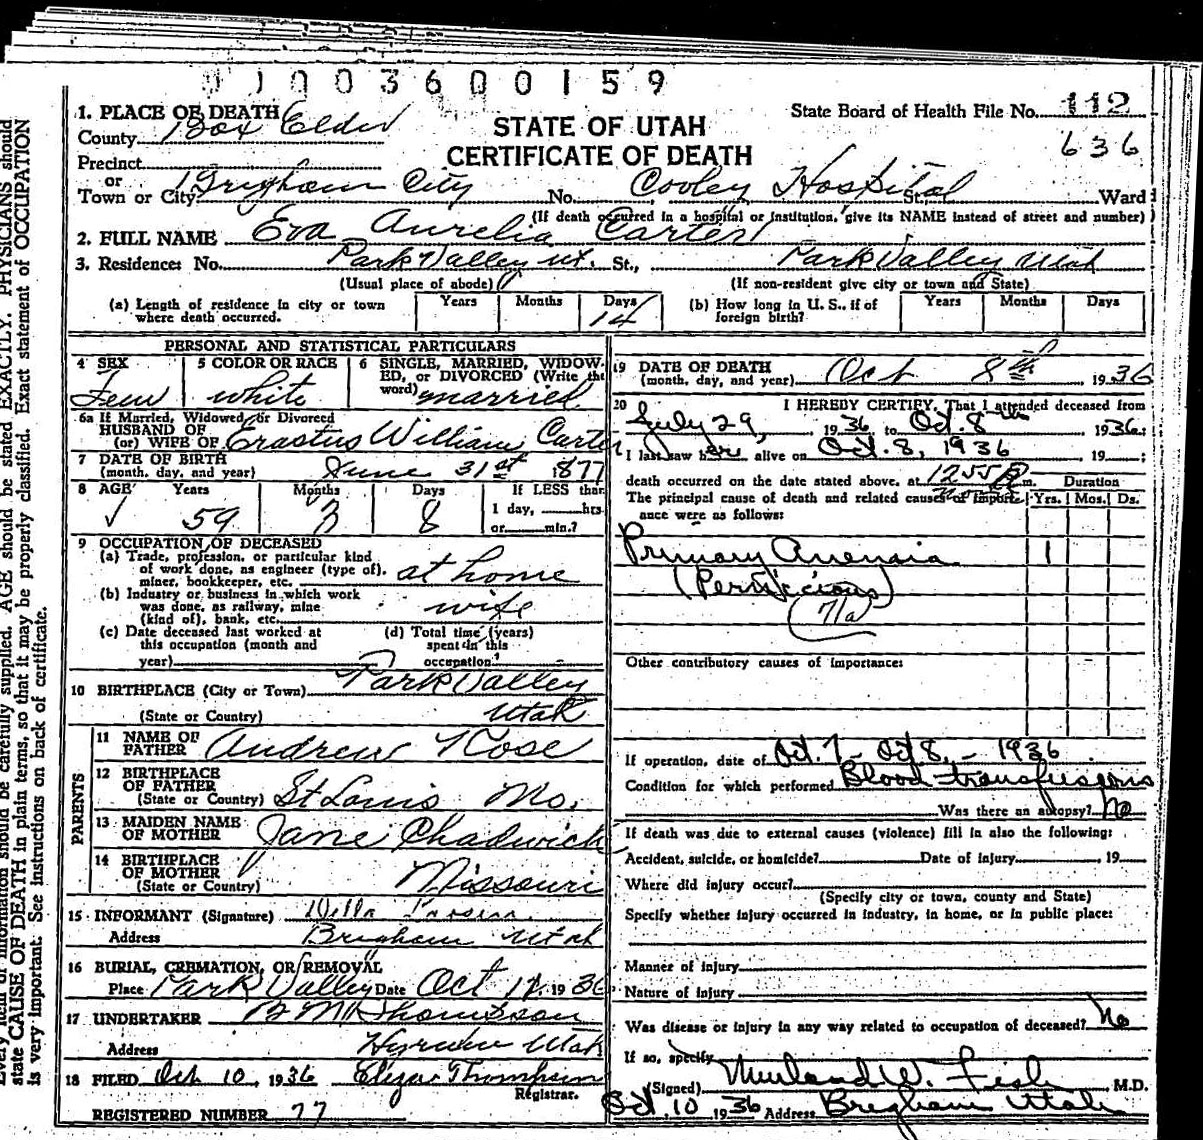 0 1 0 0 3 6 0 0 1 5 9
1. PLACE OF DEATH
County Box Elder
STATE OF UTAH
CERTIFICATE OF DEATH
State Board of Health File No. 112
636
Precinct
or
Town or City Brigham City No. Cooley Hospital St., Ward
(If death occurred in a hospital or institution, give its NAME instead of street and number)
2. FULL NAME Eva Aurelia Carter
3. Residence: No. Park Valley Ut. St., Park Valley Utah
(Usual place of abode) (If non-resident give city or town and State)
(a) Length of residence in city or town where death occurred. Years Months Days 14
(b) How long in U. S., if of foreign birth? Years Months Days
PERSONAL AND STATISTICAL PARTICULARS
4 SEX Fem
5 COLOR OR RACE white
6 SINGLE, MARRIED, WIDOWED, or DIVORCED (Write the word) married
6a If Married, Widowed or Divorced
HUSBAND OF
(or) WIFE OF Erastus William Carter
7 DATE OF BIRTH
(month, day, and year) June 31st 1877
8 AGE Years 59 Months 3 Days 8
If LESS than
1 day, hrs.
or min.?
9 OCCUPATION OF DECEASED
(a) Trade, profession, or particular kind
of work done, as engineer (type of),
miner, bookkeeper, etc. at home
(b) Industry or business in which work
was done, as railway, mine
(kind of), bank, etc. wife
(c) Date deceased last worked at
this occupation (month and
year)
(d) Total time (years)
spent in this
occupation
10 BIRTHPLACE (City or Town) Park Valley
(State or Country) Utah
PARENTS
11 NAME OF
FATHER Andrew Rose
12 BIRTHPLACE
OF FATHER
(State or Country) St Louis Mo.
13 MAIDEN NAME
OF MOTHER Jane Chadwick
14 BIRTHPLACE
OF MOTHER
(State or Country) Missouri
15 INFORMANT (Signature) Willa
Address Brigham Utah
16 BURIAL, CREMATION, OR REMOVAL
Place Park Valley Date Oct 1936
17 UNDERTAKER B M Thompson
Address Utah
18 FILED Oct 10, 1936 Eliza Thompson
Registrar.
REGISTERED NUMBER 77
19 DATE OF DEATH
(month, day, and year) Oct 8th, 1936
20 I HEREBY CERTIFY, That I attended deceased from
July 29, 1936 to Oct. 8th 1936;
I last saw her alive on Oct. 8, 1936, 19 ;
death occurred on the date stated above, at 1255 P m. Duration
The principal cause of death and related causes of importance were as follows: Yrs. Mos. Ds.
Primary Anemia 1
(Pernicious)
71a
Other contributory causes of importance:
If operation, date of Oct. 7 - Oct 8, - 1936
Condition for which performed Blood transfusions
Was there an autopsy? No
If death was due to external causes (violence) fill in also the following:
Accident, suicide, or homicide? Date of injury , 19
Where did injury occur?
(Specify city or town, county and State)
Specify whether injury occurred in industry, in home, or in public place:
Manner of injury
Nature of injury
Was disease or injury in any way related to occupation of deceased? No
If so, specify
(Signed) W. , M.D.
Oct. 10 1936 Address Brigham Utah
AGE should be stated EXACTLY. PHYSICIANS should
state CAUSE OF DEATH in plain terms, so that it may be properly classified. Exact statement of OCCUPATION
is very important. See instructions on back of certificate.